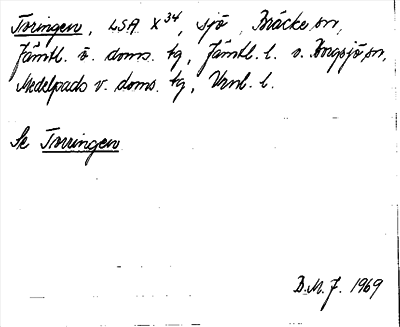 Toringen, LSA X34, sjö, Bräcke sn,
Jämtl. ö. doms. tg, Jämtl. l. o. Borgsjö sn,
Medelpads v. doms. tg, Vrnl. l.
Se Torringen
B.M.J. 1969